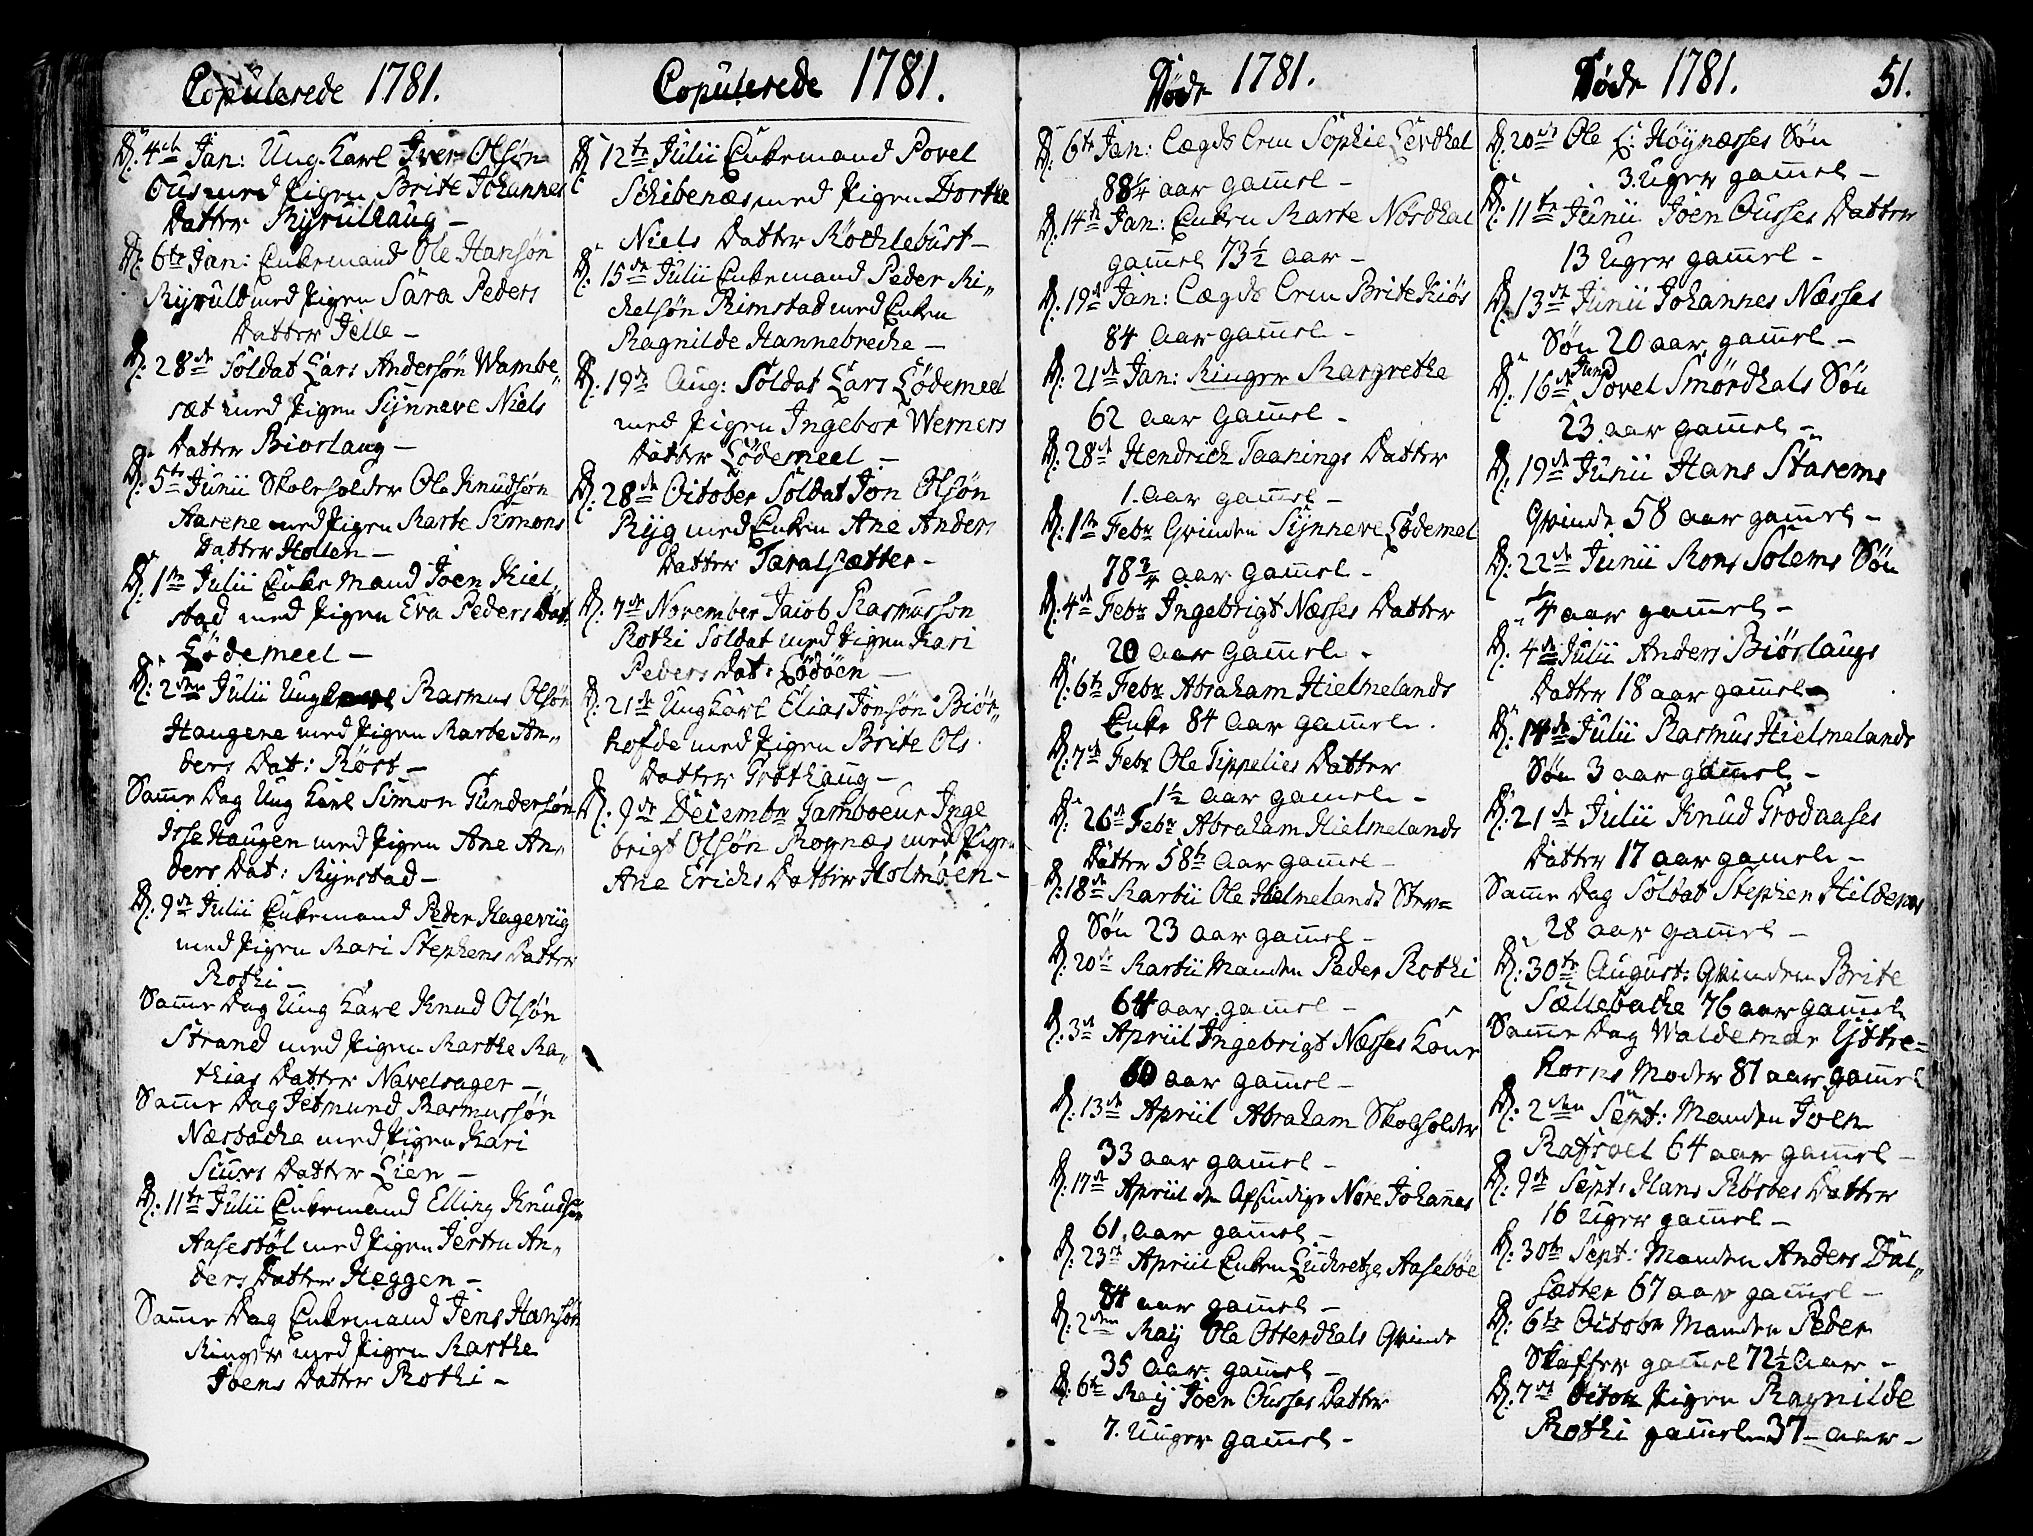 Copulerede 1781.
D: 4de Jan: Ung Karl Iver Olsøn
Ous med Pigen Brite Johannes
Datter Myrulhaug –
D: 6te Jan: Enkemand Ole Hansøn
Myruld med Pigen Sara Peders
Datter Jelle –
D: 28de Soldat Lars Andersøn Wambe„
sæt med Pigen Synneve Niels
Datter Biorlaug –
D: 5te Junii Skoleholder Ole Knudsøn
Aarene med Pigen Marte Simons
Datter Hollen –
D: 1te Julii Enke Mand Joen Kiel„
stad med Pigen Eva Peders Dat:
Lødemeel –
D: 2den Julii Ung Karl Rasmus Olsøn
Haugene med Pigen Marte An„
ders Dat: Røst –
Samme Dag Ung Karl Simon Gundersøn
Haugen med Pigen Ane An„
ders Dat: Rynstad –
D: 9de Julii Enkemand Peder Hagevig
med Pigen Mari Stephens Datter
Rothi –
Samme Dag Ung Karl Knud Olsøn
Strand med Pigen Marthe Ma„
thias Datter Navelsager –
Samme Dag Jetmund Rasmussøn
Næsbache med Pigen Kari
Siurs Datter Lien –
D: 11te Julii Enkemand Elling Knudsøn
Aasestøl med Pigen Jertru An„
ders Datter Heggen –
Samme Dag Enkemand Jens Hansøn
Ringer med Pigen Marthe
Joens Datter Rothi –
Copulerede 1781.
D: 12te Julii Enkemand Povel
Schibenæs med Pigen Dorthe
Niels Datter Røthlebust –
D: 15de Julii Enkemand Peder Mi„
chelsøn Rimstad med Enken
Ragnilde Hannebreche –
D: 19de Aug: Soldat Lars Lødemeel
med Pigen Ingebor Werners
Datter Lødemeel –
D: 28de October Soldat Jon Olsøn
Ryg med Enken Ane Anders
Datter Taralsætter –
D: 7de November Jacob Rasmusson
Rothi Soldat med Pigen Kari
Peders Dat: Lødøen –
D: 21de Ung Karl Elias Jonsøn Biør„
hofde med Pigen Brite Ols
Datter Grøthaug –
D: 9de Decembr Tamboeur Inge
brigt Olsøn Rognæs med Pigen
Ane Erichs Datter Holmøen –
Døde 1781.
D: 6te Jan: Lægds Lem Sophie Lerdhal
88¼ aar gammel –
D: 14de Jan: Enken Marte Nørdhal
gammel 73½ aar –
D: 19de Jan: Lægds Lem Brite Kiøs
84 aar gammel –
D: 21de Jan: Ringer Margrethe
62 aar gammel –
D: 28de Hendrich Taanings Datter
1. aar gammel –
D: 1te Febr Qvinden Synneve Lødemel
78¾ aar gammel –
D: 4de Febr Ingebrigt Næsses Datter
20 aar gammel.
D: 6te Febr Abraham Hielmelands
Enke 84 aar gammel.
D: 7de Febr Ole Tippelies Datter
1½ aar gammel –
D: 26de Febr Abraham Hielmelands
Datter 58te aar gammel –
D: 18de Martii Ole Hielmelands Stev=
Søn 23 aar gammel –
D: 20de Martii Manden Peder Rothi
64 aar gammel –
D: 3de Apriil Ingebrigt Næsses Kone
60 aar gammel –
D: 13de Apriil Abraham Skolholder
33 aar gammel –
D: 17de Apriil den Afsindige Nore Johannes
61. aar gammel –
D: 23de Apriil Enken Luchretze Aasebøe
84 aar gammel –
D: 2den May Ole Otterdhals Qvinde
35 aar gammel –
D: 6te May Joen Ousses Datter
7. Uuger gammel –
Døde 1781. 51.
D: 20de Ole L: Høynæsses Søn
3. Uger gammel –
D: 11te Junii Joen Ousses Datter
13 Uger gammel –
D: 13de Junii Johannes Næsses
Søn 20 aar gammel –
D: 16de Juni Povel Smørdhals Søn
23 aar gammel –
D: 19de Junii Hans Starems
Qvinde 58 aar gammel –
D: 22de Junii Mons Solems Søn
¼ aar gammel –
D: 4de Julii Anders Biørlaugs
Datter 18 aar gammel –
D: 14de Julii Rasmus Hielmelands
Søn 3 aar gammel –
D: 21de Julii Knud Grodaases
Datter 17 aar gammel –
Samme Dag Soldat Stephen Hildenæs
28 aar gammel –
D: 30te August: Qvinden Brite
Sællebache 76 aar gammel
Samme Dag Waldemar Ystre=
horns Moder 87 aar gammel
D: 2den Sept: Manden Joen
Rafsvel 64 aar gammel –
D: 9de Sept: Hans Røsves Datter
16 Uger gammel –
D: 30te Sept: Manden Anders Dal„
sætter 67 aar gammel –
D: 6te Octobr Manden Peder
Skaffer gammel 72½ aar –
D: 7de Octobr Pigen Ragnilde
Rothi gammel 37 – aar –